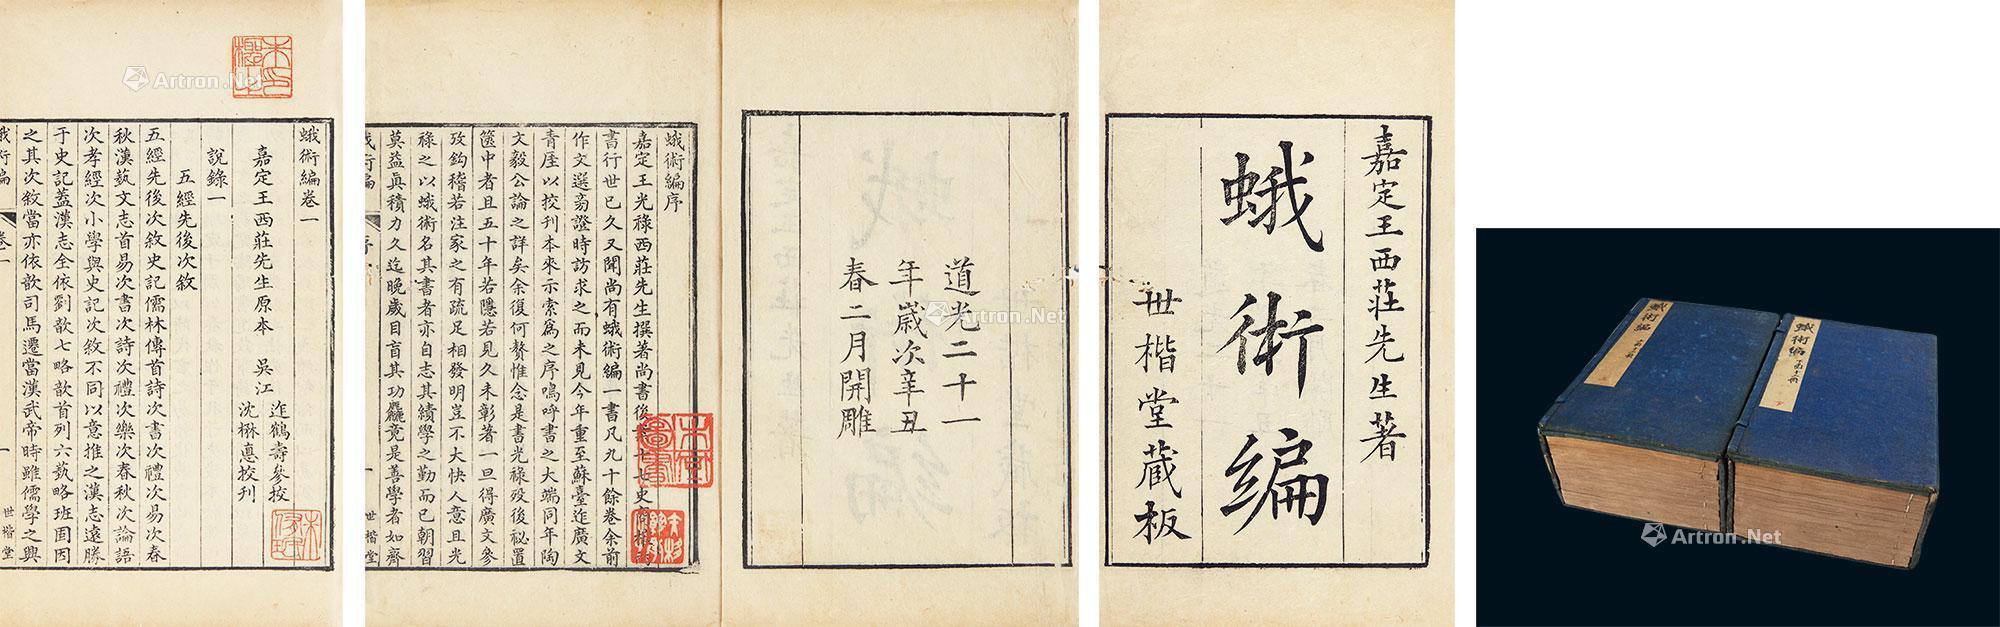 嘉定王西莊先生著
蛾術編
世楷堂藏板
道光二十一
年歲次辛丑
春二月開雕
蛾術編序
嘉定王光祿西莊先生撰著尚書後
書行世已久又聞尚有蛾術編一書凡九十餘卷余前
作文選旁證時訪求之而未見今年重至蘇臺迮廣文
青厓以挍刊本來示索爲之序嗚呼書之大端同年陶
文毅公論之詳矣余復何贅惟念是書光祿歿後祕置
篋中者且五十年若隱若見久未彰著一旦得廣文參
攷鈎稽若注家之有疏足相發明豈不大快人意且光
祿之以蛾術名其書者亦自志其績學之勤而已朝習
莫益眞積力久迄晚歲目盲其功麤竟是善學者如齊
蛾術編
序
一
世楷堂
蛾術編卷一
嘉定王西莊先生原本 吳江
迮鶴壽參挍
沈楙悳挍刊
說錄一
五經先後次敘
五經先後次敘史記儒林傳首詩次書次禮次易次春
秋漢蓺文志首易次書次詩次禮次樂次春秋次論語
次孝經次小學與史記次敘不同以意推之漢志遠勝
于史記蓋漢志全依劉歆七略歆首列六蓺略班固因
之其次敘當亦依歆司馬遷當漢武帝時雖儒學之興
蛾術編
卷一
一
世楷堂
蛾術編
蛾術編
Artron.Net
Artron.Net
Artron.Net
Artron.Net